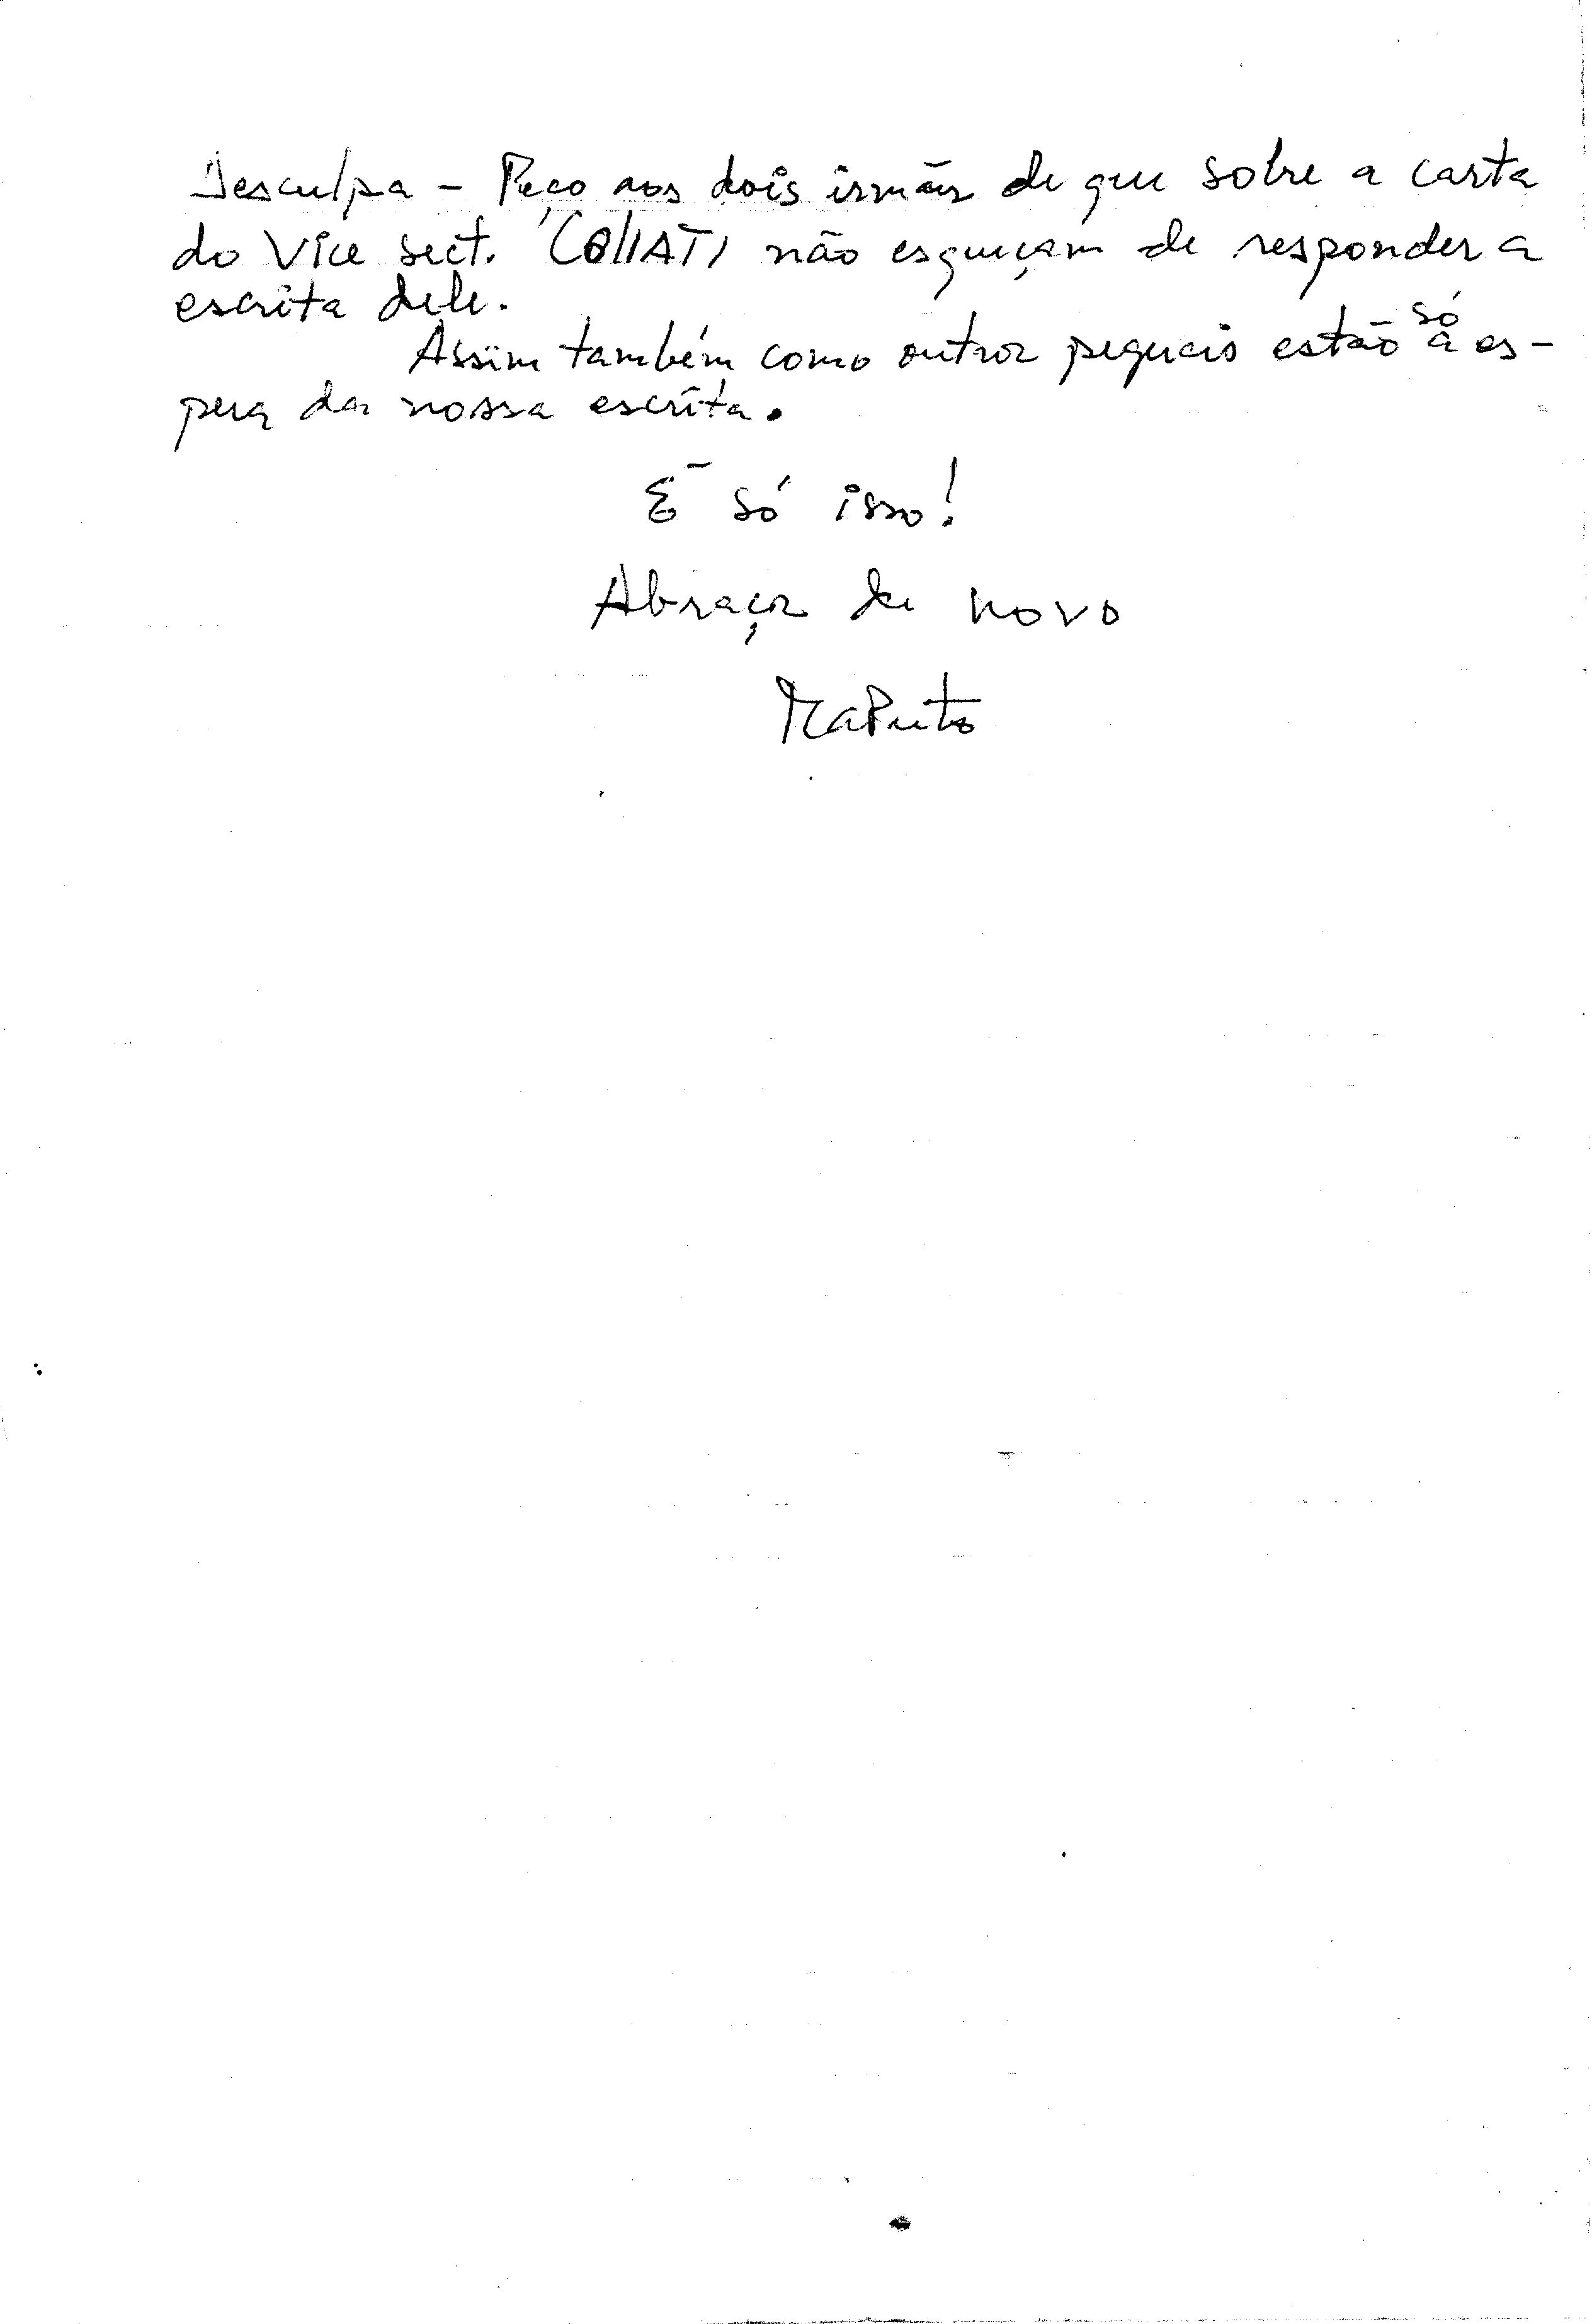 Desculpa - Peço aos dois irmãos de que sobre a carta
do Vice sect. não esqueçam de responder a
escrita dele.
Assim também como outros estão só à es-
pera da nossa escrita.
É só isso!
Abraços de novo